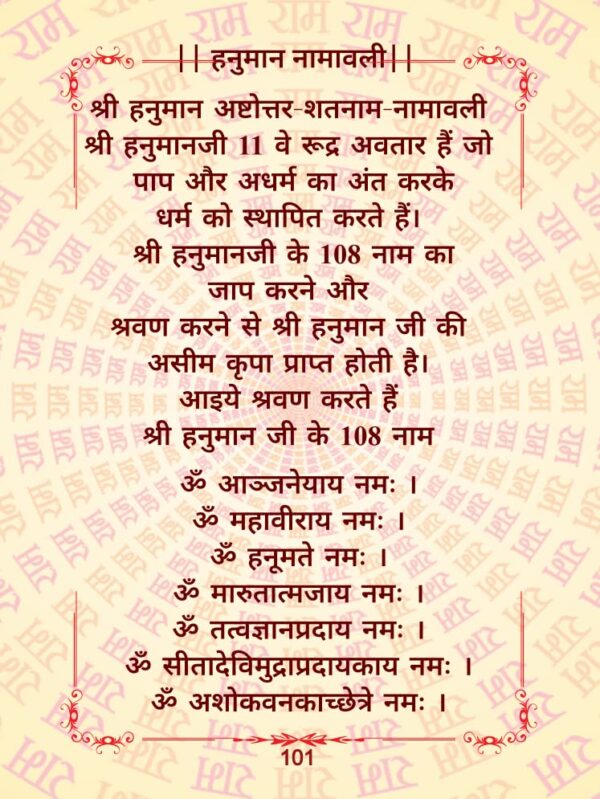 || हनुमान नामावली||
श्री हनुमान अष्टोत्तर-शतनाम-नामावली
श्री हनुमानजी 11 वे रूद्र अवतार हैं जो
पाप और अधर्म का अंत करके
धर्म को स्थापित करते हैं।
श्री हनुमानजी के 108 नाम का
जाप करने और
श्रवण करने से श्री हनुमान जी की
असीम कृपा प्राप्त होती है।
आइये श्रवण करते हैं
श्री हनुमान जी के 108 नाम
ॐ आञ्जनेयाय नमः ।
ॐ महावीराय नमः ।
ॐ हनूमते नमः ।
ॐ मारुतात्मजाय नमः ।
ॐ तत्वज्ञानप्रदाय नमः ।
ॐ सीतादेविमुद्राप्रदायकाय नमः ।
ॐ अशोकवनकाच्छेत्रे नमः ।
101